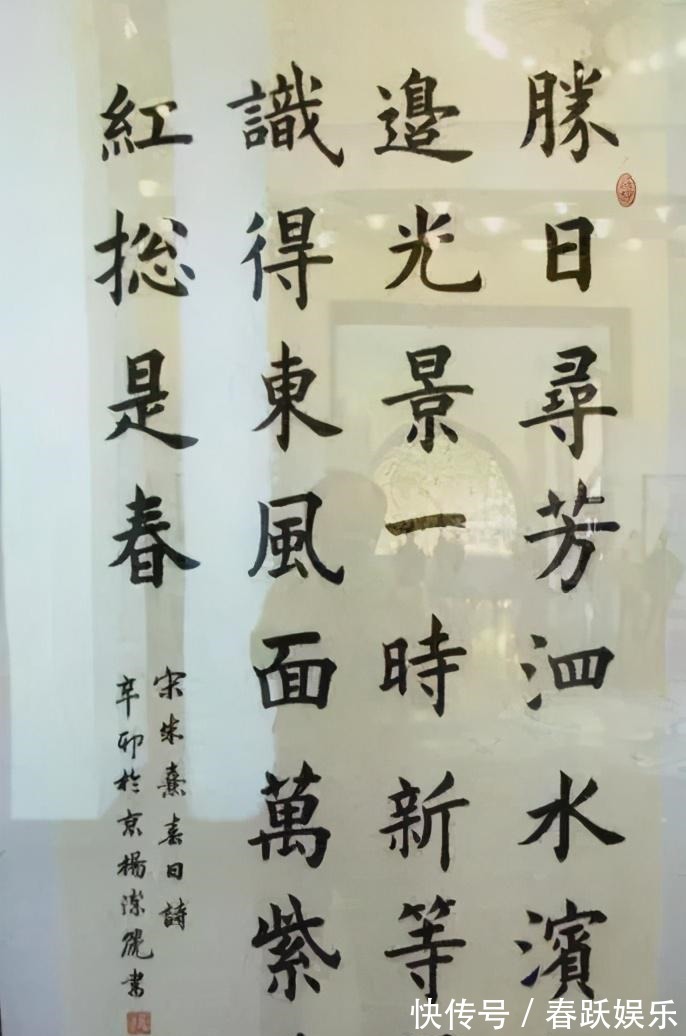 勝日尋芳泗水濱
邊光景一時新等
識得東風面萬紫
紅捴是春
宋朱熹春日詩
辛卯於京楊潔書
快传号 / 春跃娱乐